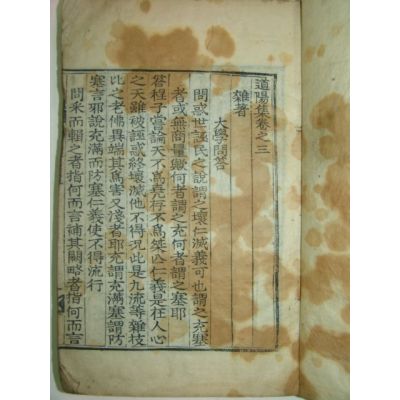 道陽集卷之三
雜著
大學問答
問惑世誣民之說謂之壞仁滅義可也謂之充塞
者或無商量歟何者謂之充何者謂之塞耶
答程子嘗論天不為堯存不為桀亡仁義是在人心
之天雖被誣惑終壞滅他不得况此是九流等雜技
比之老佛異端其為害又淺者耶充謂充滿塞謂防
塞言邪說充滿而防塞仁義使不得流行
問采而輯之者指何而言補其闕略者指何而言